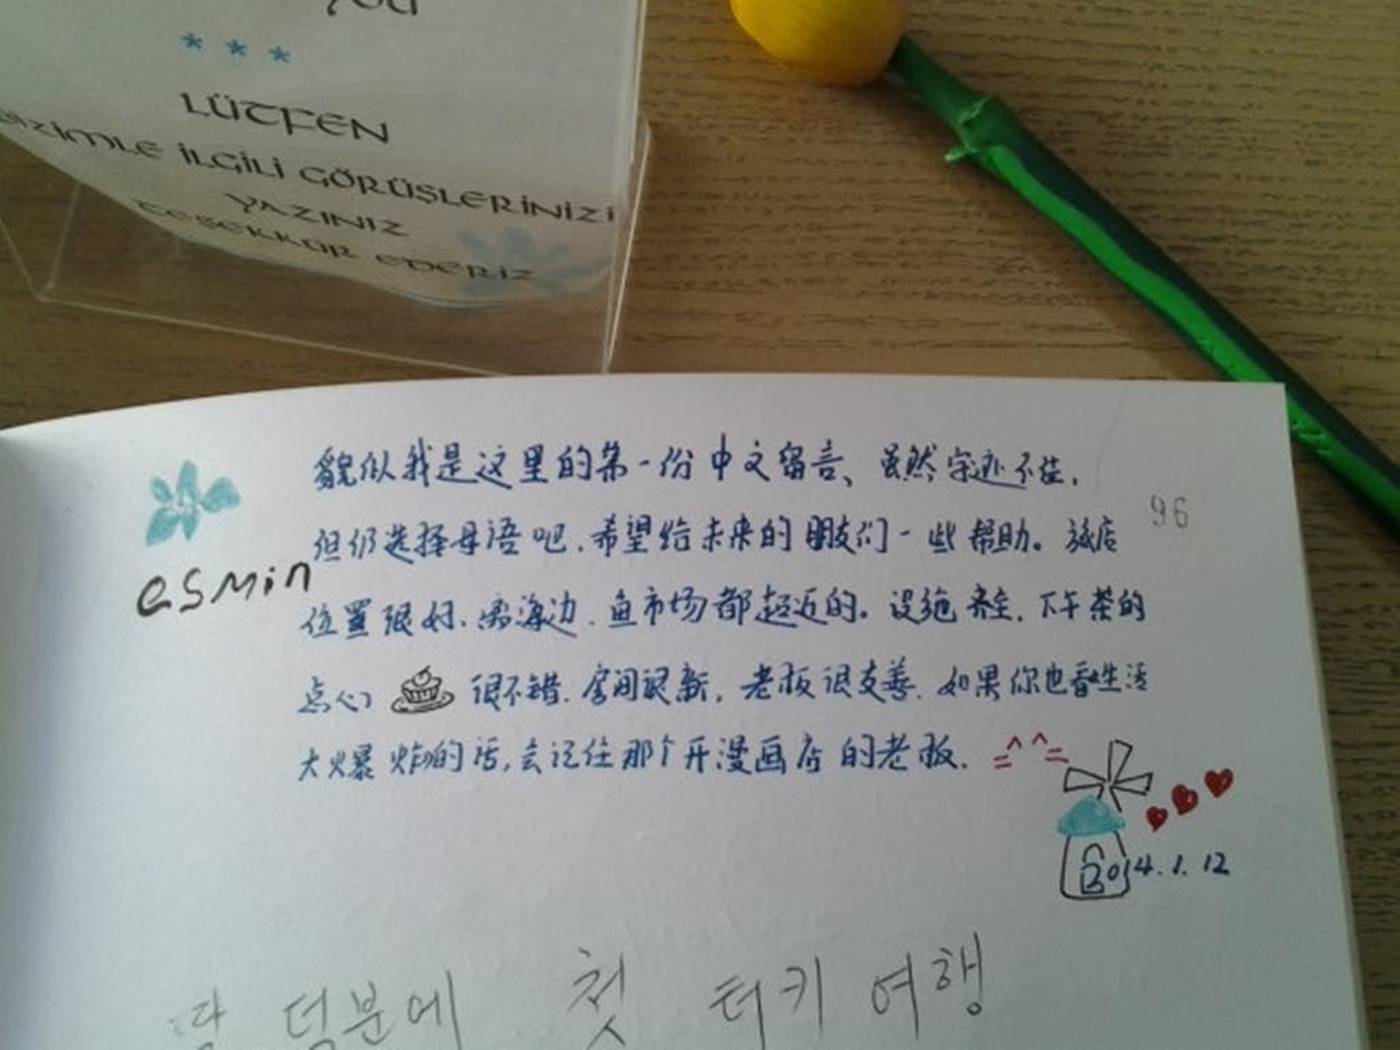 you
* * *
LÜTFEN
BİZİMLE İLGİLİ GÖRÜŞLERİNİZİ
YAZINIZ
TEŞEKKÜR EDERİZ
貌似我是这里的第一份中文留言、虽然字迹不佳.
96
但仍选择母语吧.希望给未来的朋友们一些帮助。旅店
esmin
位置很好、离海边.鱼市场都超近的。设施齐全.下午茶的
点心 很不错.房间很新.老板很友善.如果你也看生活
大爆炸的话,会记住那个开漫画店的老板. =^^=
2014.1.12
딸 덕분에 첫 터키 여행